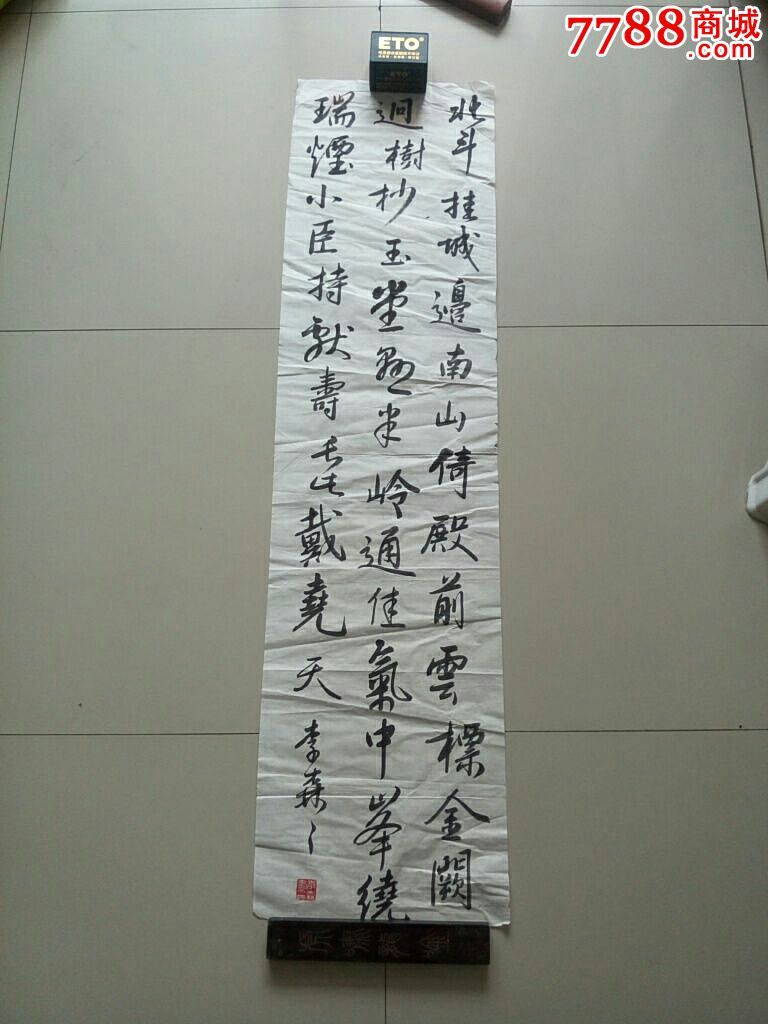 7788商城
.com
ETO
ETO
北斗挂城邊南山倚殿前雲標金闕
迥樹杪玉堂懸半岭通佳氣中峯繞
瑞煙小臣持献壽長此戴堯天
李森